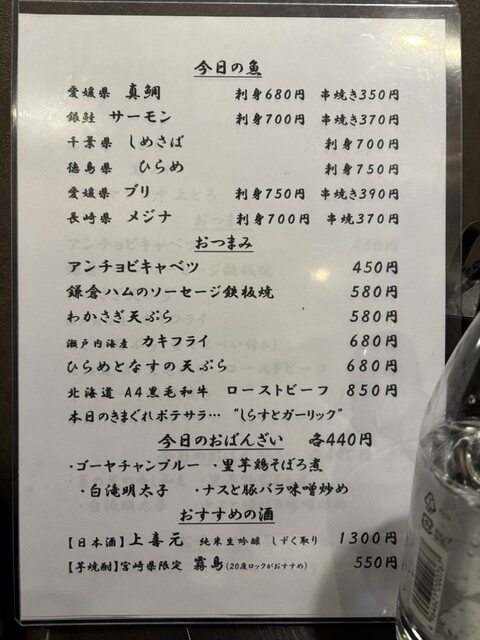 今日の魚
愛媛県 真鯛 刺身680円 串焼き350円
銀鮭 サーモン 刺身700円 串焼き370円
千葉県 しめさば 刺身700円
徳島県 ひらめ 刺身750円
愛媛県 ブリ 刺身750円 串焼き390円
長崎県 メジナ 刺身700円 串焼370円
おつまみ
アンチョビキャベツ 450円
鎌倉ハムのソーセージ鉄板焼 580円
わかさぎ天ぷら 580円
瀬戸内海産 カキフライ 680円
ひらめとなすの天ぷら 680円
北海道 A4黒毛和牛 ローストビーフ 850円
本日のきまぐれポテサラ… “しらすとガーリック”
今日のおばんざい 各440円
・ゴーヤチャンプルー ・里芋鶏そぼろ煮
・白滝明太子 ・ナスと豚バラ味噌炒め
おすすめの酒
【日本酒】上喜元 純米生吟醸 しずく取り 1300円
【芋焼酎】宮崎県限定 霧島(20度ロックがおすすめ) 550円